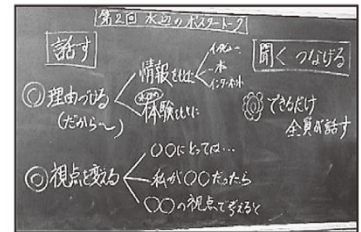 第2回 水辺のポスタートーク
話す
聞く つなげる
◎理由づける
(だから〜)
情報をもとに
インタビュー
本
インターネット
体験をもとに
できるだけ
全員が話す
◎視点を変える
○○にとっては…
私が○○だったら
○○の視点で考えると